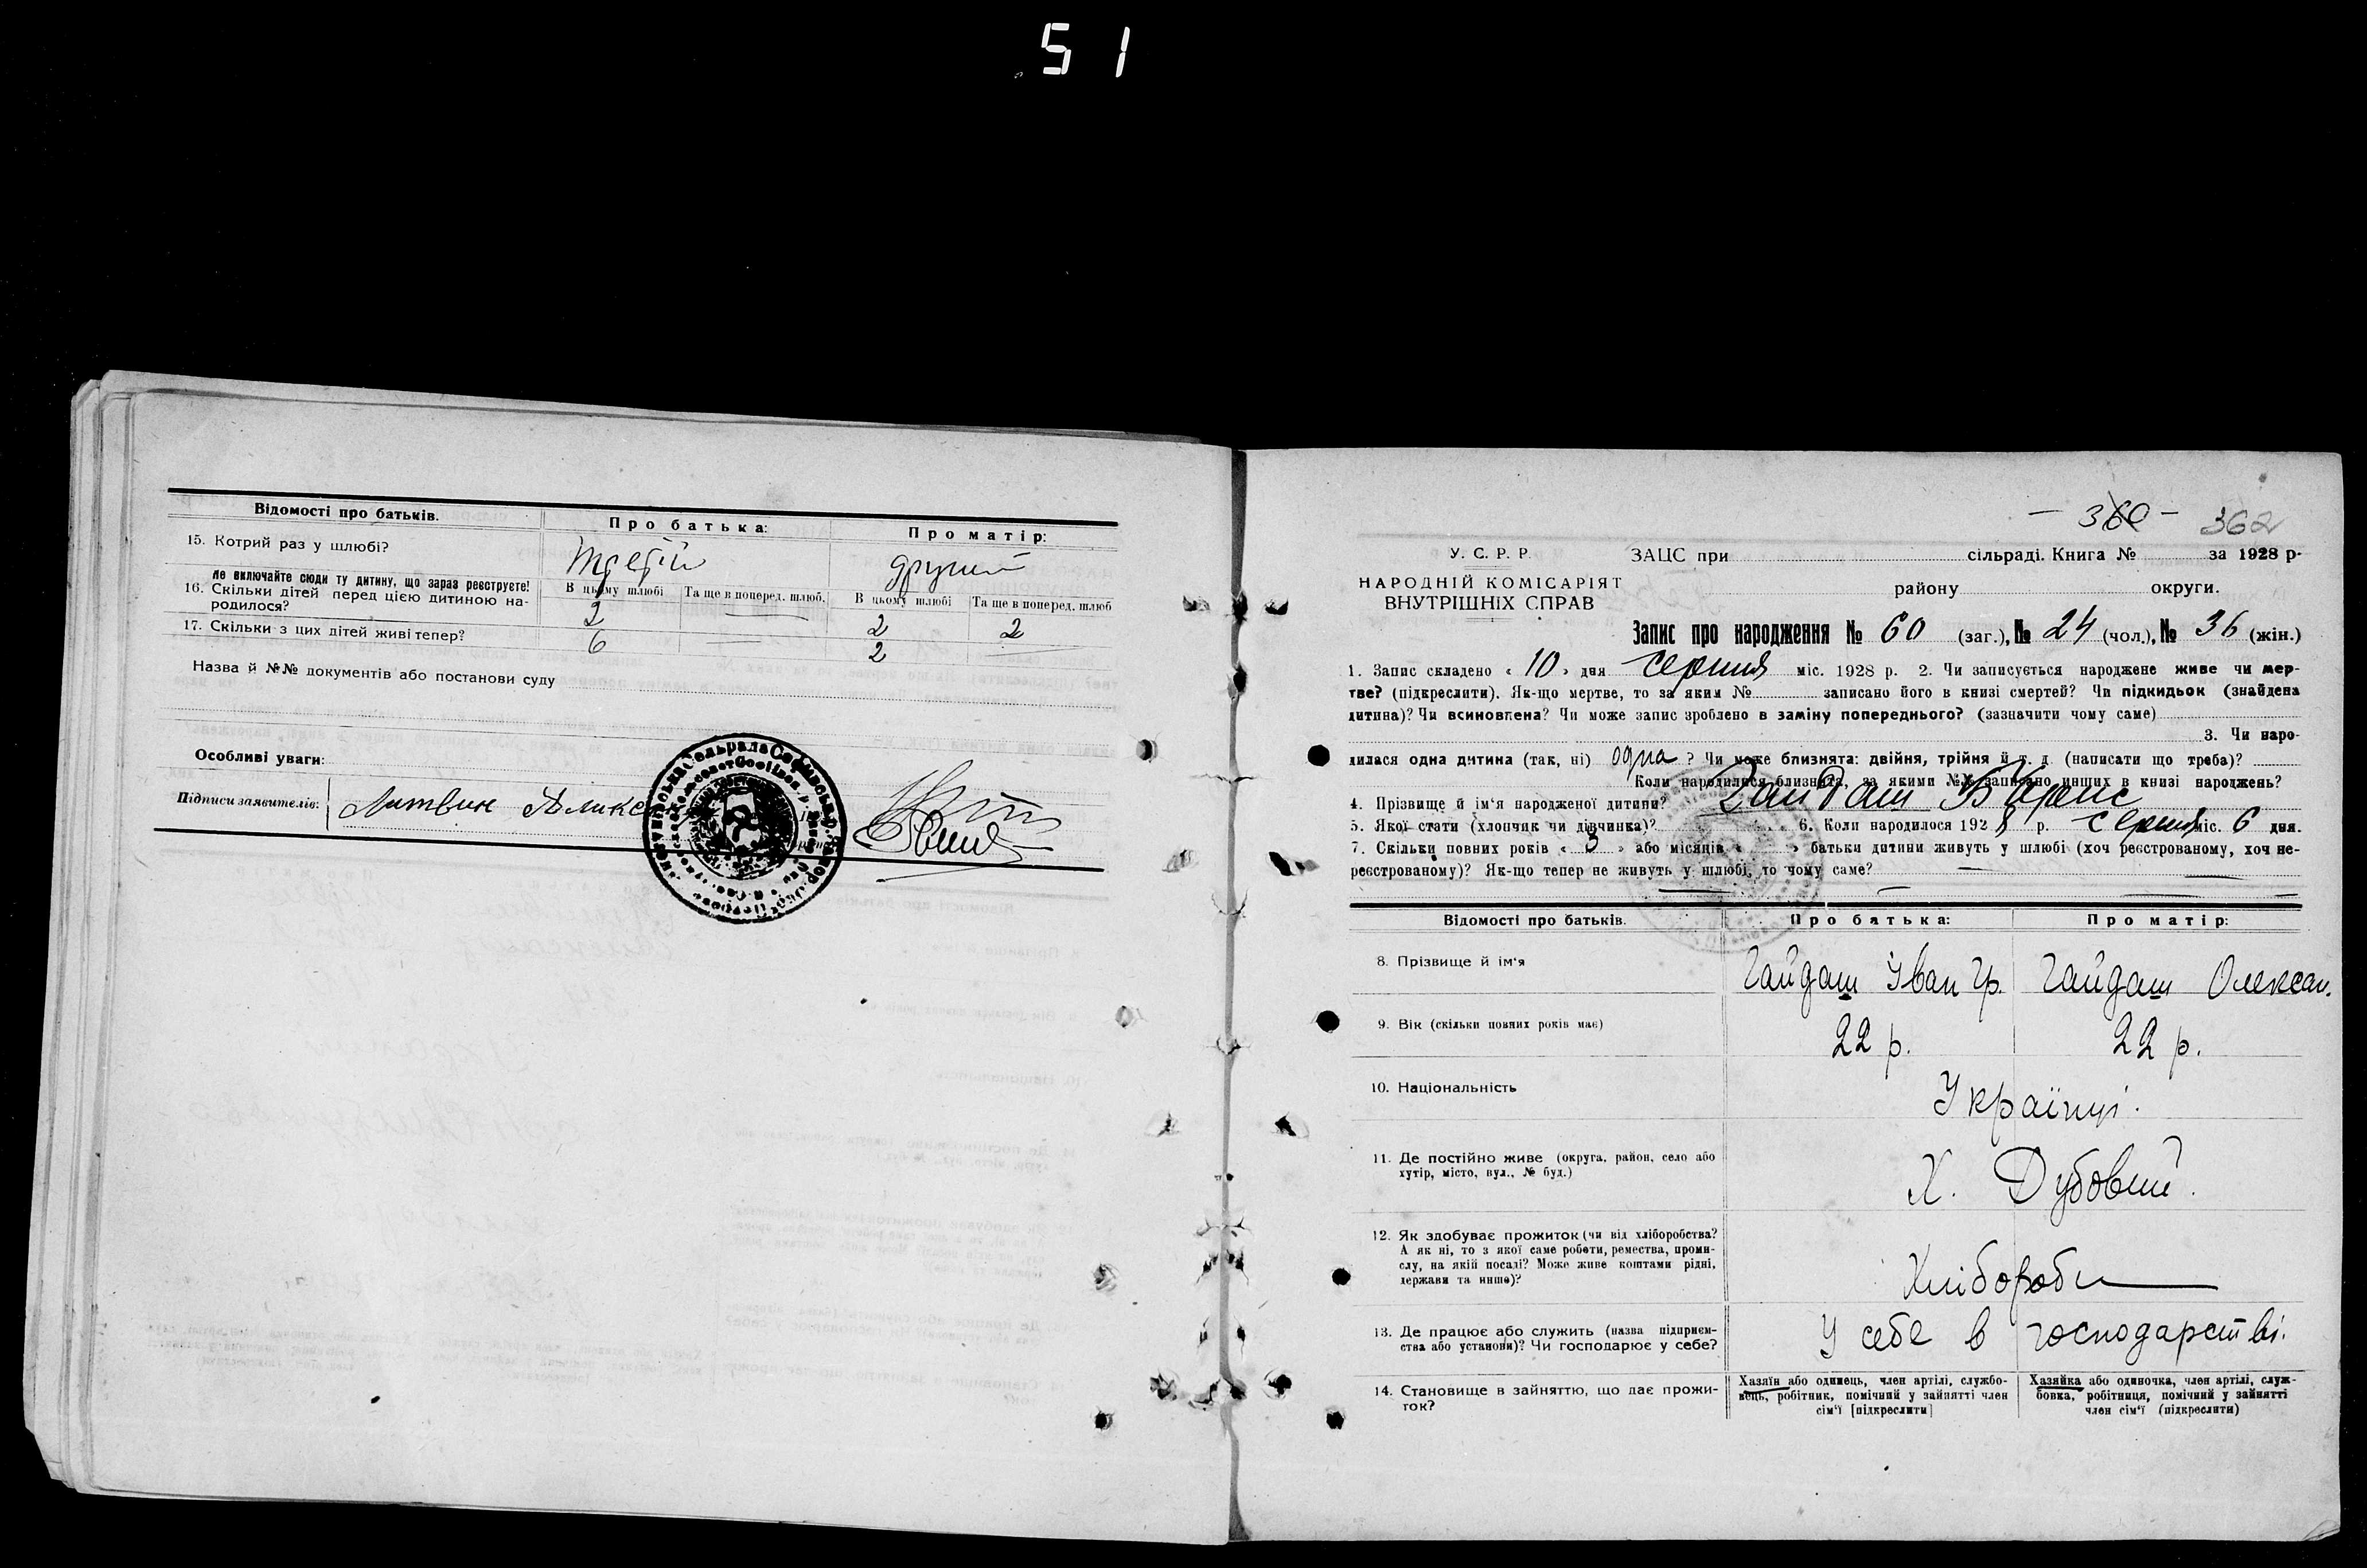 51
Відомості про батьків. Про батька: Про матір:
15. Котрий раз у шлюбі? третій другий
Не включайте сюди ту дитину, що зараз реєструєте!
16. Скільки дітей перед цією дитиною народилося? В цьому шлюбі Та ще в поперед. шлюб. В цьому шлюбі Та ще в поперед. шлюб
2 — 2 2
17. Скільки з цих дітей живі тепер? 6 — 2 —
Назва й №№ документів або постанови суду
Особливі уваги:
Підписи заявителів: Литвин
– 360 – 362
У. С. Р. Р. ЗАЦС при сільраді. Книга № за 1928 р.
НАРОДНІЙ КОМІСАРІЯТ
району округи.
ВНУТРІШНІХ СПРАВ
Запис про народження № 60 (заг.), № 24 (чол.), № 36 (жін.)
1. Запис складено « 10 » дня серпня міс. 1928 р. 2. Чи записується народжене живе чи мер-
тве? (підкреслити). Як-що мертве, то за яким № записано його в книзі смертей? Чи підкидьок (знайдена
дитина)? Чи всиновлена? Чи може запис зроблено в заміну попереднього? (зазначити чому саме)
3. Чи наро-
дилася одна дитина (так, ні) одна ? Чи може близнята: двійня, трійня й т. д. (написати що треба)?
Коли народилися близнята, за якими №№ записано инших в книзі народжень?
4. Прізвище й ім'я народженої дитини? Гайдаш
5. Якої стати (хлопчик чи дівчинка)? 6. Коли народилося 1928 р. серпня міс. 6 дня.
7. Скільки повних років « 3 » або місяців « » батьки дитини живуть у шлюбі (хоч реєстрованому, хоч не-
реєстрованому)? Як-що тепер не живуть у шлюбі, то чому саме? —
Відомості про батьків. Про батька: Про матір:
8. Прізвище й ім'я Гайдаш Іван Гр. Гайдаш Олексан.
9. Вік (скільки повних років має) 22 р. 22 р.
10. Національність Українці.
11. Де постійно живе (округа, район, село або
хутір, місто, вул., № буд.) Х. Дубовий.
12. Як здобуває прожиток (чи від хліборобства?
А як ні, то з якої саме роботи, ремества, проми-
слу, на якій посаді? Може живе коштами рідні,
держави та инше)? Хлібороби
13. Де працює або служить (назва підприєм-
ства або установи)? Чи господарює у себе? У себе в господарстві.
14. Становище в зайняттю, що дає прожи-
ток?
Хазяїн або одинець, член артілі, службо-
вець, робітник, помічний у зайнятті член
сім'ї [підкреслити]
Хазяйка або одиночка, член артілі, служ-
бовка, робітниця, помічний у зайнятті
член сім'ї (підкреслити)